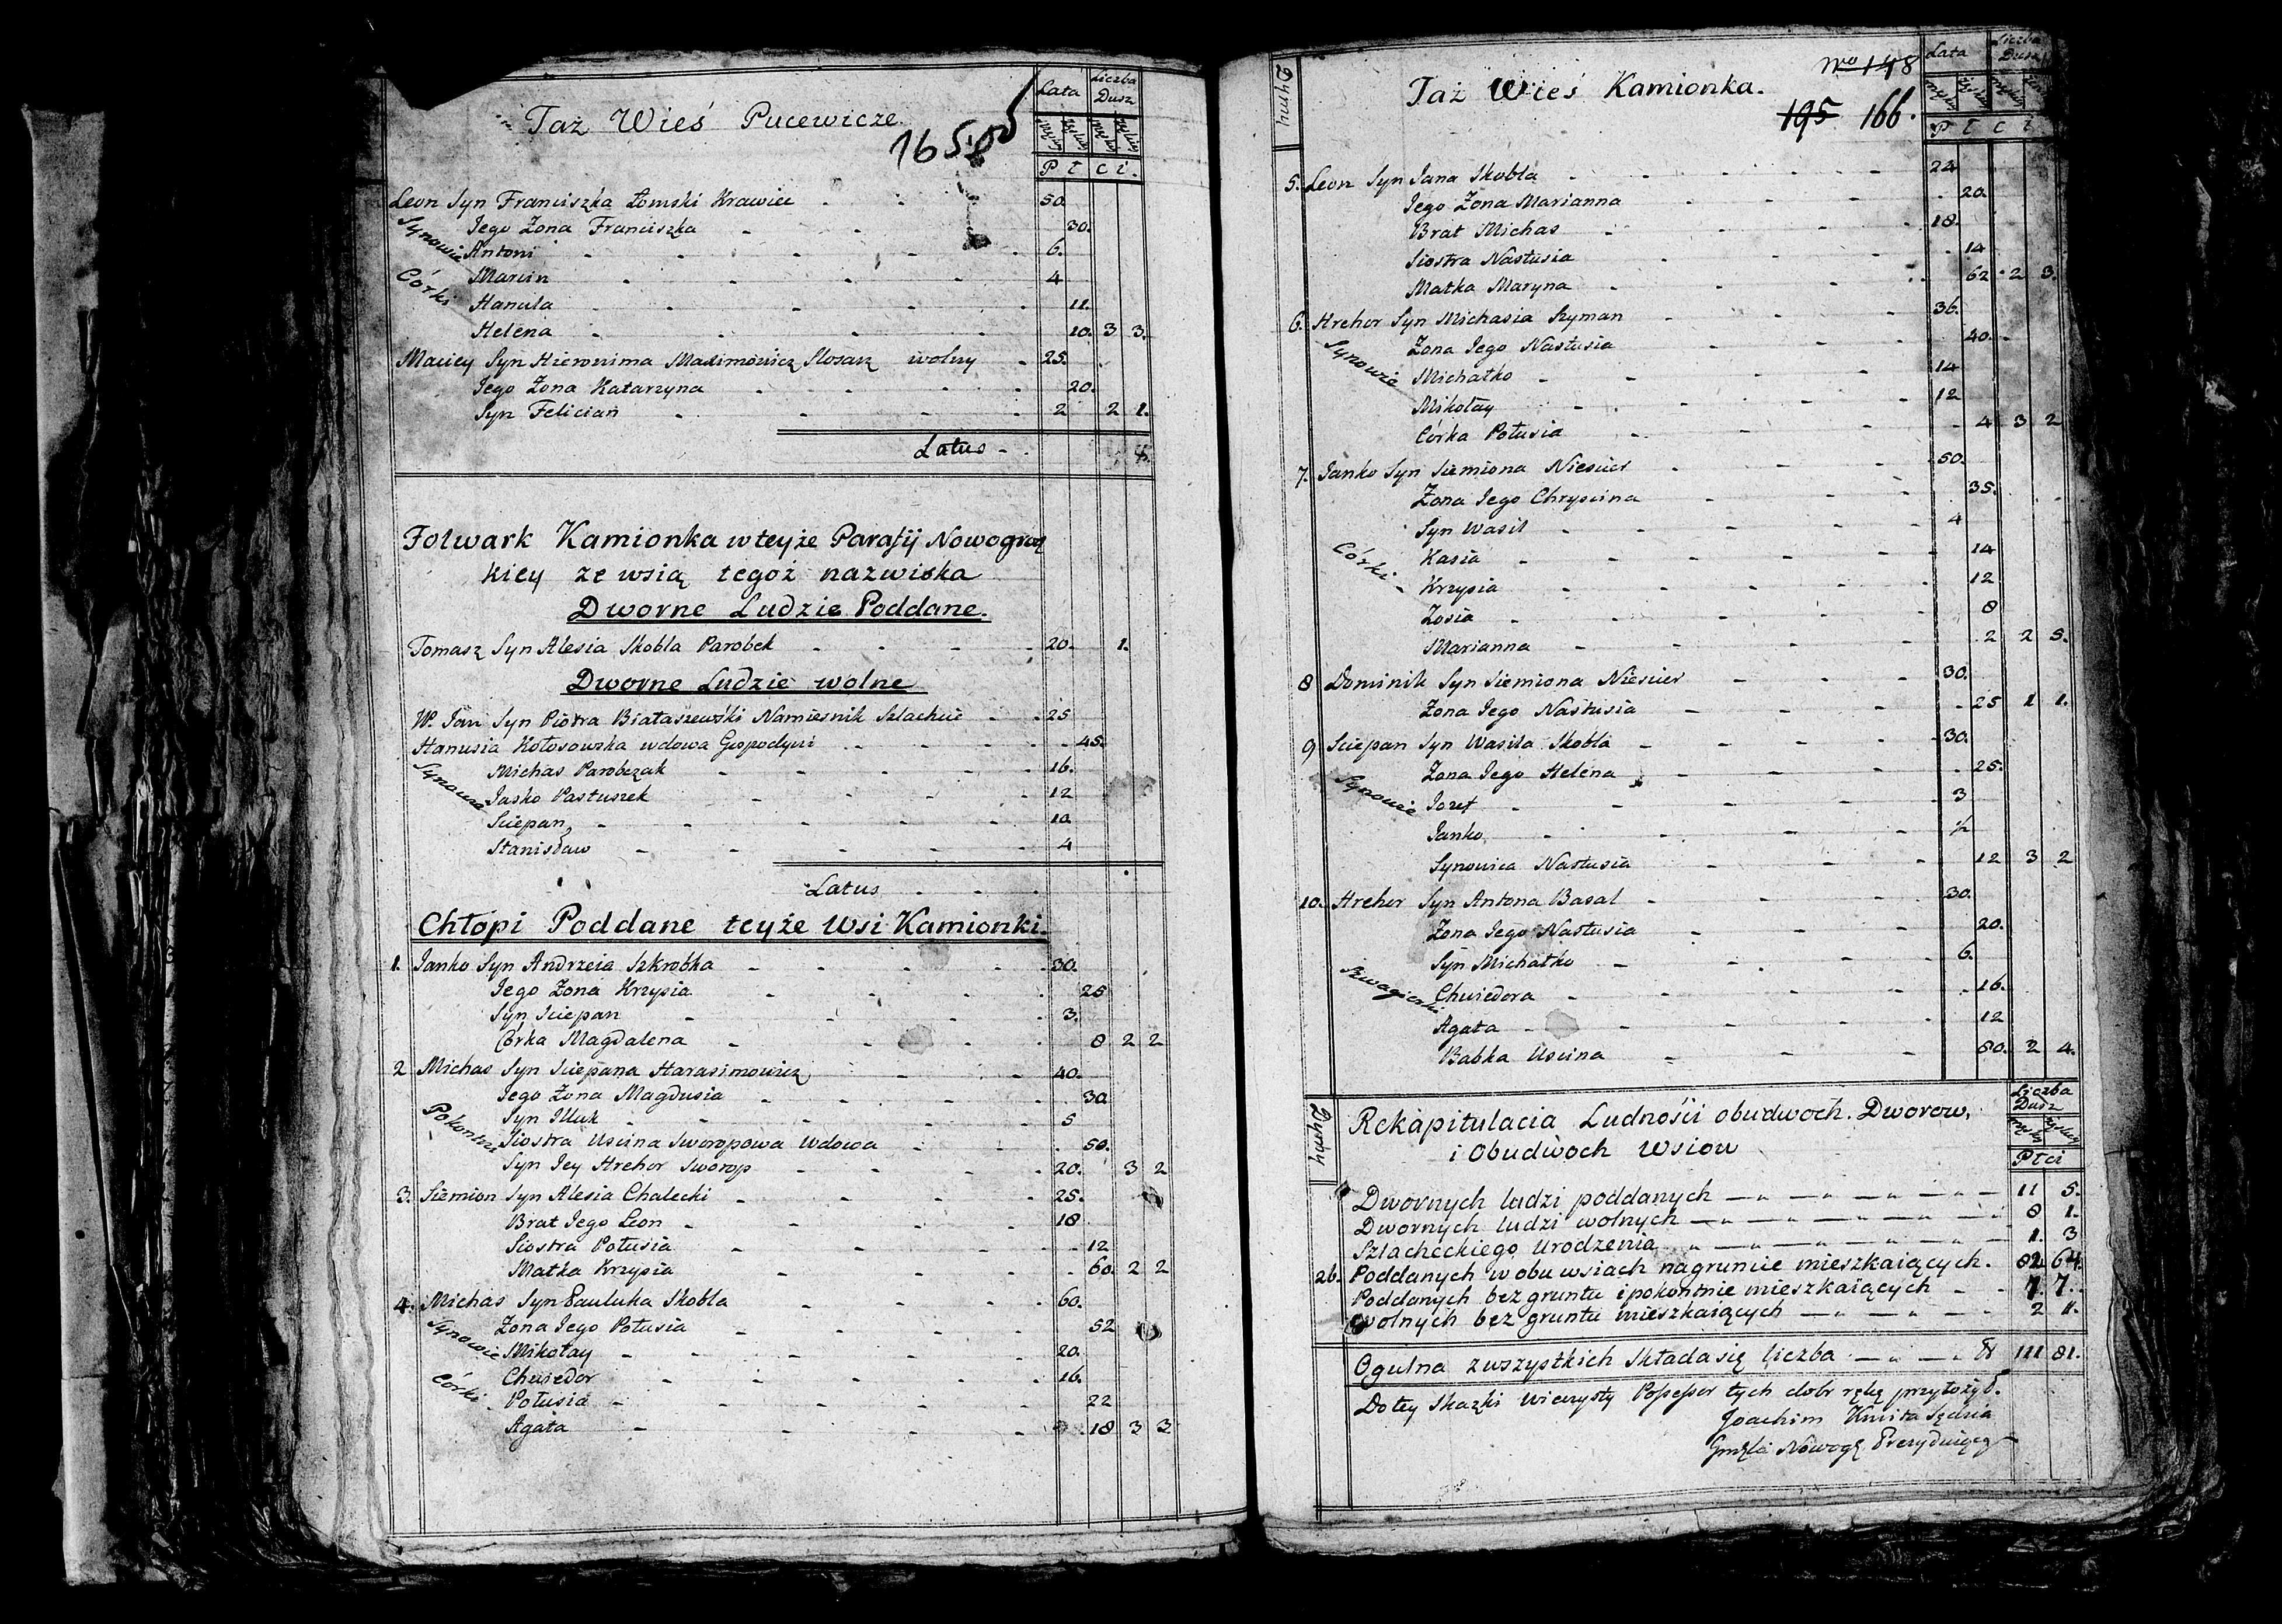 Taż Wieś Pucewicze.
165
Lata
Liczba
Dusz
P ł c i.
Leon Syn Franciszka Łomski Krawiec 50.
Jego Żona Franciszka 30.
Synowie Antoni 6.
Marcin 4
Córki Hanula 11.
Helena 10. 3 3.
Maciey Syn Hieronima Maximowicz Slosarz wolny 25.
Jego Żona Katarzyna 20.
Syn Felician 2 2 1.
Latus
Folwark Kamionka w teyże Parafij Nowogrodz
kiey ze wsią tegoż nazwiska
Dworne Ludzie Poddane.
Tomasz Syn Alesia Skobla Parobek 20. 1.
Dworne Ludzie wolne
W. Jan Syn Piotra Białaszewski Namiesnik Szlachcic 25
Hanusia Kołosowska wdowa Gospodyni 45.
Synowie Michas Parobczak 16.
Jasko Pastuszek 12
Sciepan 10.
Stanisław 4
Latus
Chłopi Poddane teyże Wsi Kamionki.
1. Janko Syn Andrzeia Szkrobka 30.
Jego Żona Krzysia 25
Syn Sciepan 3.
Córka Magdalena 8 2 2
2 Michas Syn Sciepana Harasimowicz 40.
Jego Żona Magdusia 30.
Syn Illuk 5
Siostra Uscina Sworopowa Wdowa 50.
Syn Jey Hrehor Sworop 20. 3 2
3. Siemion Syn Alesia Chalecki 25.
Brat Jego Leon 18
Siostra Połusia 12
Matka Krzysia 60. 2 2
4. Michas Syn Pauluka Skobla 60.
Żona Jego Połusia 52
Synowie Mikołay 20.
Chwiedor 16.
Córki Połusia 22
Agata 18 3 3
Dymy
Taż Wieś Kamionka.
No 148
195 166.
Lata
Liczba
Dusz
P ł c i
5. Leon Syn Jana Skobla 24
Jego Żona Marianna 20.
Brat Michas 18.
Siostra Nastusia 14
Matka Maryna 62 2 3.
6. Hrehor Syn Michasia Szyman 36.
Żona Jego Nastusia 40.
Synowie Michałko 14
Mikołay 12
Córka Połusia 4 3 2
7. Janko Syn Siemiona Niescier 50.
Żona Jego Chryscina 35.
Syn Wasil 4
Córki Kasia 14
Krzysia 12
Zosia 8
Marianna 2 2 5.
8 Dominik Syn Siemiona Niescier 30.
Żona Jego Nastusia 25 1 1.
9 Sciepan Syn Wasila Skobla 30.
Żona Jego Helena 25.
Synowie Jozef 3
Janko ½
Synowica Nastusia 12 3 2
10. Hrehor Syn Antona Basal 30.
Żona Jego Nastusia 20.
Syn Michałko 6.
Szwagierki Chwiedora 16.
Agata 12
Babka Uscina 80. 2 4.
Dymy
Liczba
Dusz
Płci
Rekapitulacia Ludności obudwoch Dworow,
i Obudwoch Wsiow
Dwornych ludzi poddanych 11 5.
Dwornych ludzi wolnych 8 1.
Szlacheckiego Urodzenia 1. 3
26. Poddanych w obu wsiach na gruncie mieszkaiących. 82 64.
Poddanych bez gruntu i pokontnie mieszkaiących 7. 7.
Wolnych bez gruntu mieszkaiących 2 1.
Ogulna z wszystkich Składa się liczba 111 81.
Do tey Skazki wieczysty Possessor tych dobr rękę przyłożył.
Joachim Kmita Sędzia